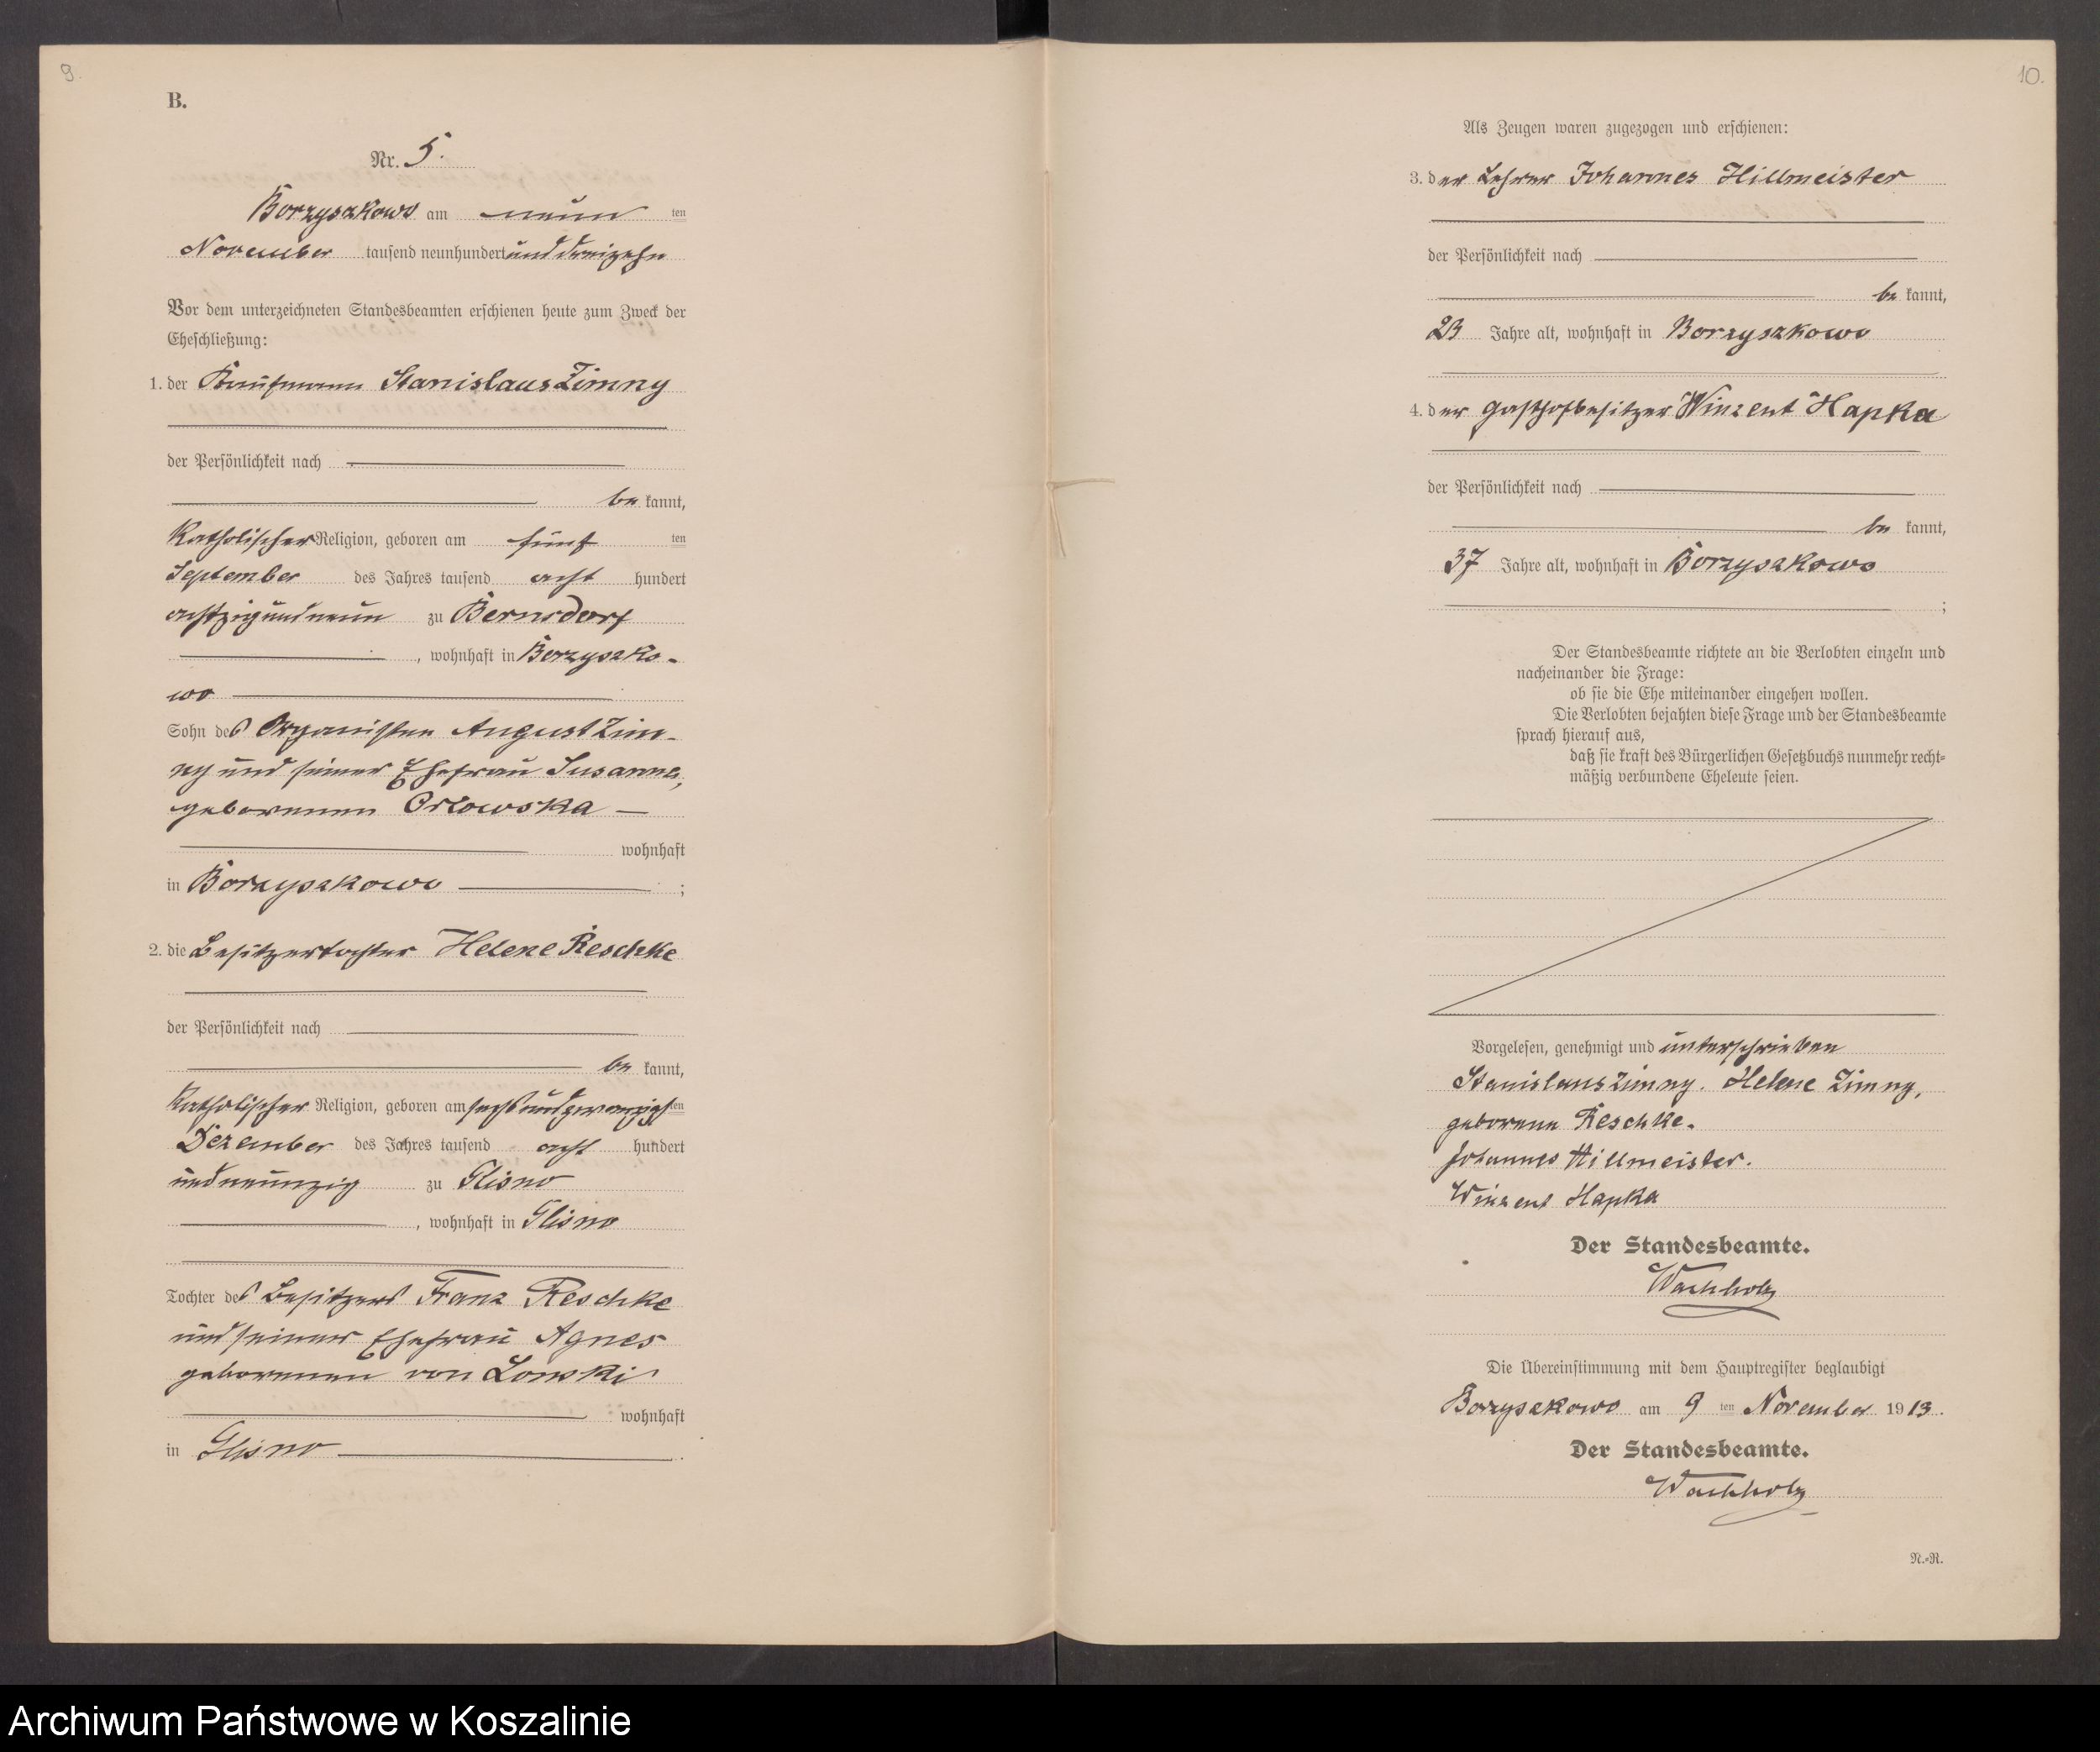 9.
B.
Nr. 5.
Borzyszkowo am neun ten
November tausend neunhundert und dreizehn
Vor dem unterzeichneten Standesbeamten erschienen heute zum Zweck der
Eheschließung:
1. der Kaufmann Stanislaus Zimny
der Persönlichkeit nach
be kannt,
Katholischer Religion, geboren am fünf ten
September des Jahres tausend acht hundert
achtzig und neun zu Bernsdorf
, wohnhaft in Borzyszko-
wo
Sohn des Organisten August Zim-
ny und seiner Ehefrau Susanna,
geborenen Orlowska
wohnhaft
in Borzyszkowo ;
2. die Besitzertochter Helene Reschke
der Persönlichkeit nach
be kannt,
Katholischer Religion, geboren am sechsundzwanzigsten
Dezember des Jahres tausend acht hundert
und neunzig zu Glisno
, wohnhaft in Glisno
Tochter des Besitzers Franz Reschke
und seiner Ehefrau Agnes
geborenen von Lonski
wohnhaft
in Glisno .
10.
Als Zeugen waren zugezogen und erschienen:
3. der Lehrer Johannes Hillmeister
der Persönlichkeit nach
be kannt,
23 Jahre alt, wohnhaft in Borzyszkowo
4. der Gasthofbesitzer Winzent Hapka
der Persönlichkeit nach
be kannt,
37 Jahre alt, wohnhaft in Borzyszkowo
;
Der Standesbeamte richtete an die Verlobten einzeln und
nacheinander die Frage:
ob sie die Ehe miteinander eingehen wollen.
Die Verlobten bejahten diese Frage und der Standesbeamte
sprach hierauf aus,
daß sie kraft des Bürgerlichen Gesetzbuchs nunmehr recht-
mäßig verbundene Eheleute seien.
Vorgelesen, genehmigt und unterschrieben
Stanislaus Zimny. Helene Zimny,
geborene Reschke.
Johannes Hillmeister.
Winzent Hapka
Der Standesbeamte.
Wachholz
Die Übereinstimmung mit dem Hauptregister beglaubigt
Borzyszkowo am 9 ten November 1913.
Der Standesbeamte.
Wachholz
N.-R.
Archiwum Państwowe w Koszalinie